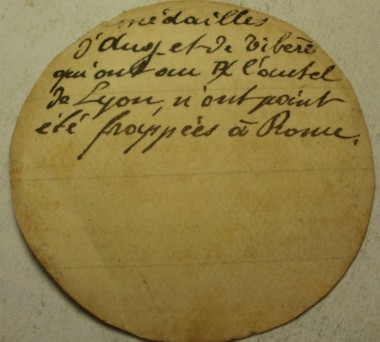 médailles
d'Aug. et de Tibère
qui ont au R/ l'autel
de Lyon, n'ont point
été frappées à Rome.